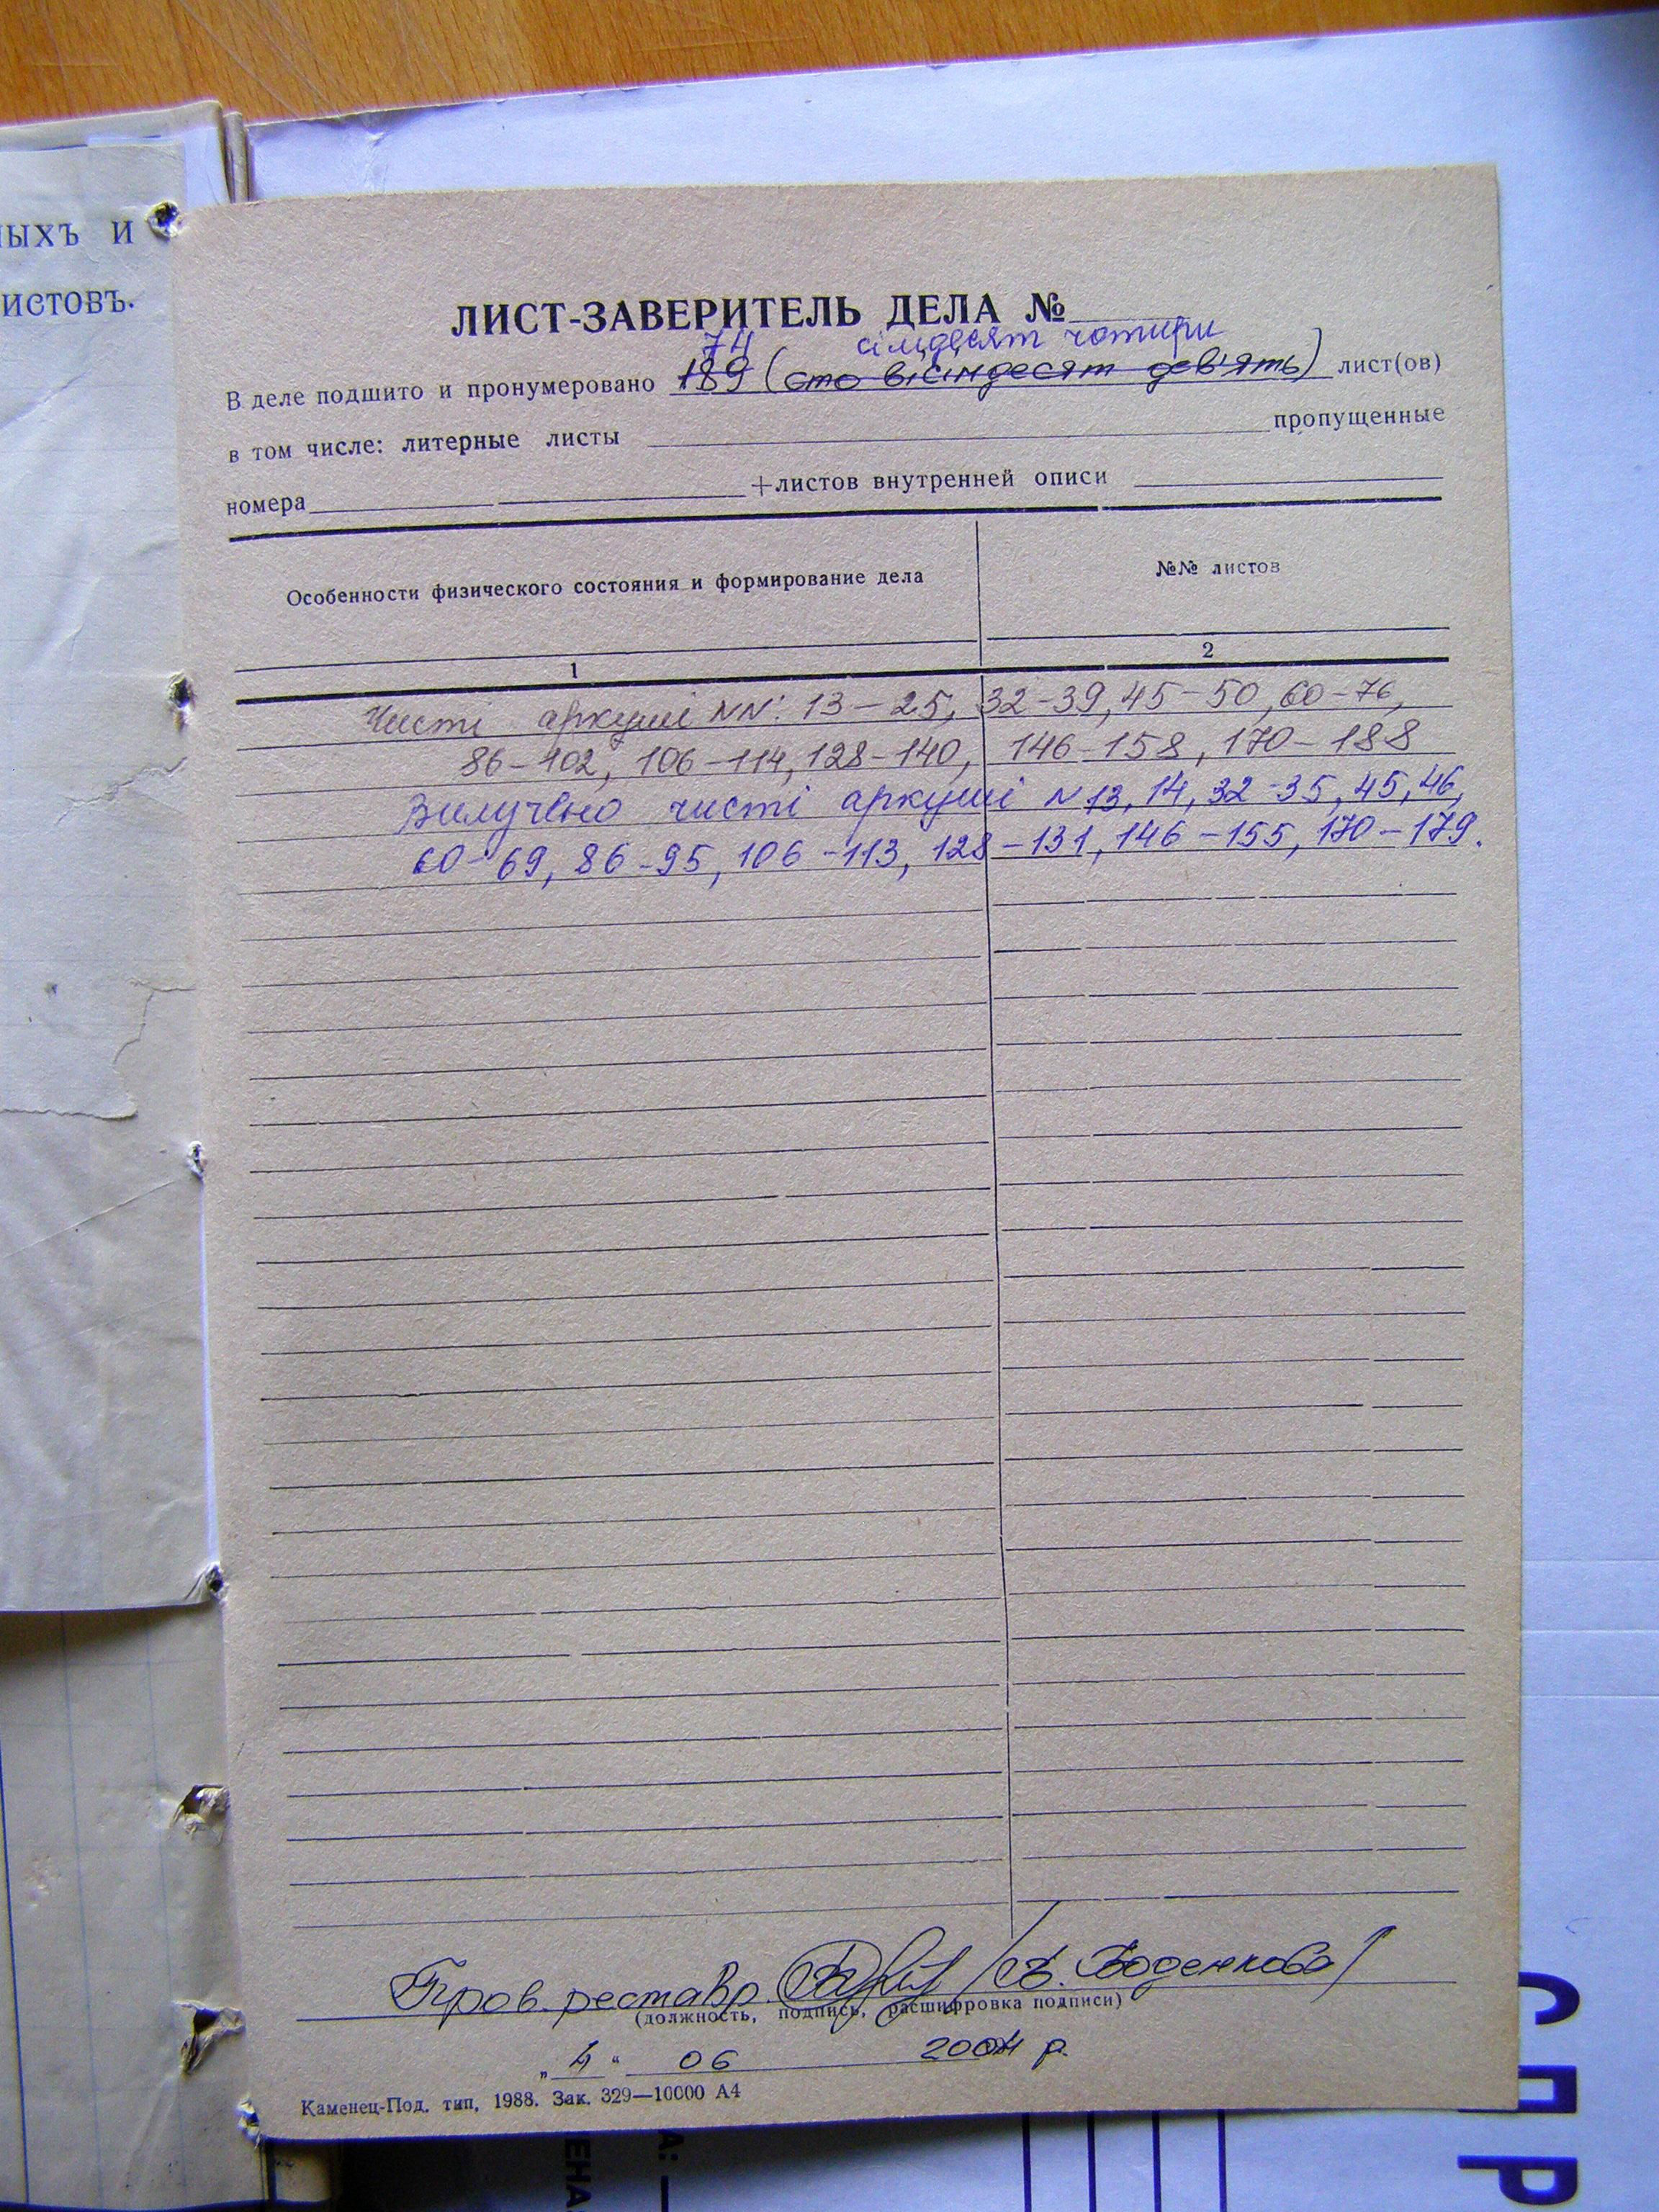 ЫХЪ И
ИСТОВЪ.
ЛИСТ-ЗАВЕРИТЕЛЬ ДЕЛА №
74 сімдесят чотири
В деле подшито и пронумеровано 189 (сто вісімдесят дев'ять) лист(ов)
в том числе: литерные листы пропущенные
номера +листов внутренней описи
Особенности физического состояния и формирование дела
№№ листов
1
2
Чисті аркуші NN: 13-25, 32-39, 45-50, 60-76,
86-102, 106-114, 128-140, 146-158, 170-188
Вилучено чисті аркуші N 13, 14, 32-35, 45, 46,
60-69, 86-95, 106-113, 128-131, 146-155, 170-179.
Пров. реставр. Воденкова)
(должность, подпись, расшифровка подписи)
„4" 06 2004 р.
Каменец-Под. тип, 1988. Зак. 329—10000 А4
СПР
ЕНА
А: